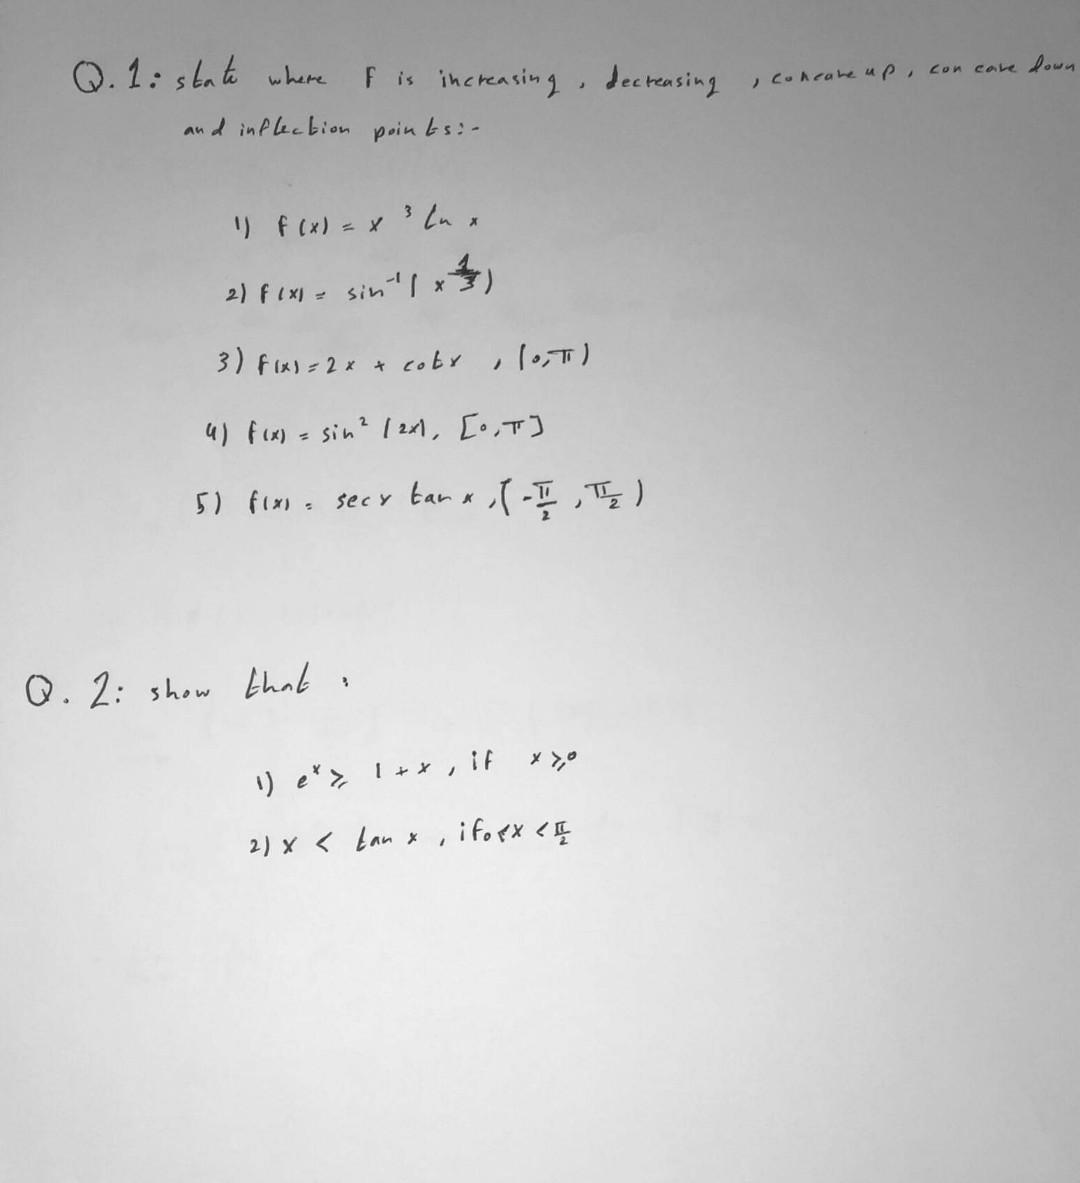 Q.1: state where f is increasing, decreasing, concave up, concave down
and inflection points:-
1) f(x) = x³ ln x
2) f(x) = sin⁻¹(x^1/3)
3) f(x) = 2x + cot x, (0,π)
4) f(x) = sin²(2x), [0,π]
5) f(x) = sec x tan x, (-π/2, π/2)
Q.2: show that:
1) eˣ ⩾ 1+x, if x⩾0
2) x < tan x, if 0<x<π/2